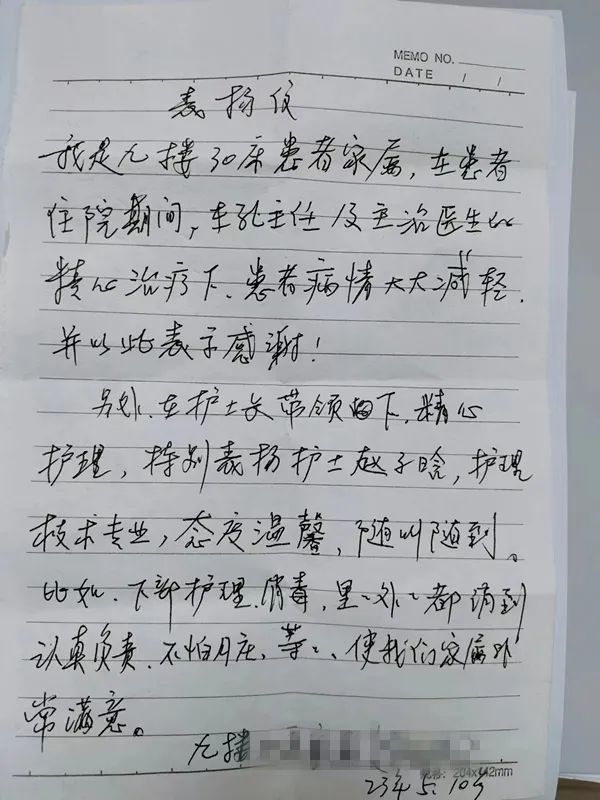 MEMO NO.
DATE / /
表扬信
我是九楼30床患者家属，在患者
住院期间，在孔主任及主治医生的
精心治疗下、患者病情大大减轻.
并以此表示感谢！
另外、在护士长带领下、精心
护理，特别表扬护士赵子晗，护理
技术专业，态度温馨，随叫随到。
比如、下部护理、消毒，里里外外都消到
认真负责、不怕脏、等等、使我们家属非
常满意。
九楼
规格：204x142mm
23年5.10号